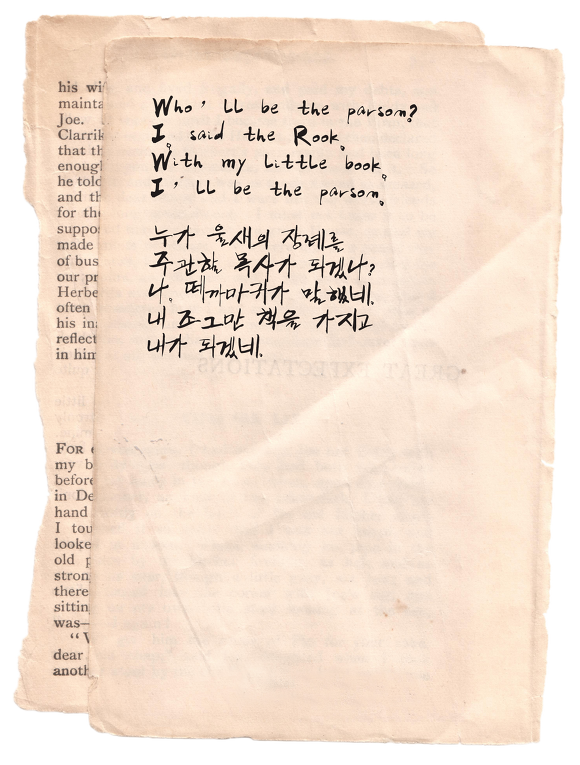 Who'll be the parson?
I, said the Rook,
With my little book,
I'll be the parson.
누가 울새의 장례를
주관할 목사가 되겠나?
나. 떼까마귀가 말했네.
내 조그만 책을 가지고
내가 되겠네.
his wi
mainta
Joe.
Clarrik
that th
enough
he told
and th
for the
suppos
made
of bus
our pr
Herbe
often
his ina
reflect
in him
GREAT EXPECTATIONS.
FOR
my b
before
in De
hand
I tou
looke
old p
stron
there
sittin
was—
"
dear
anoth